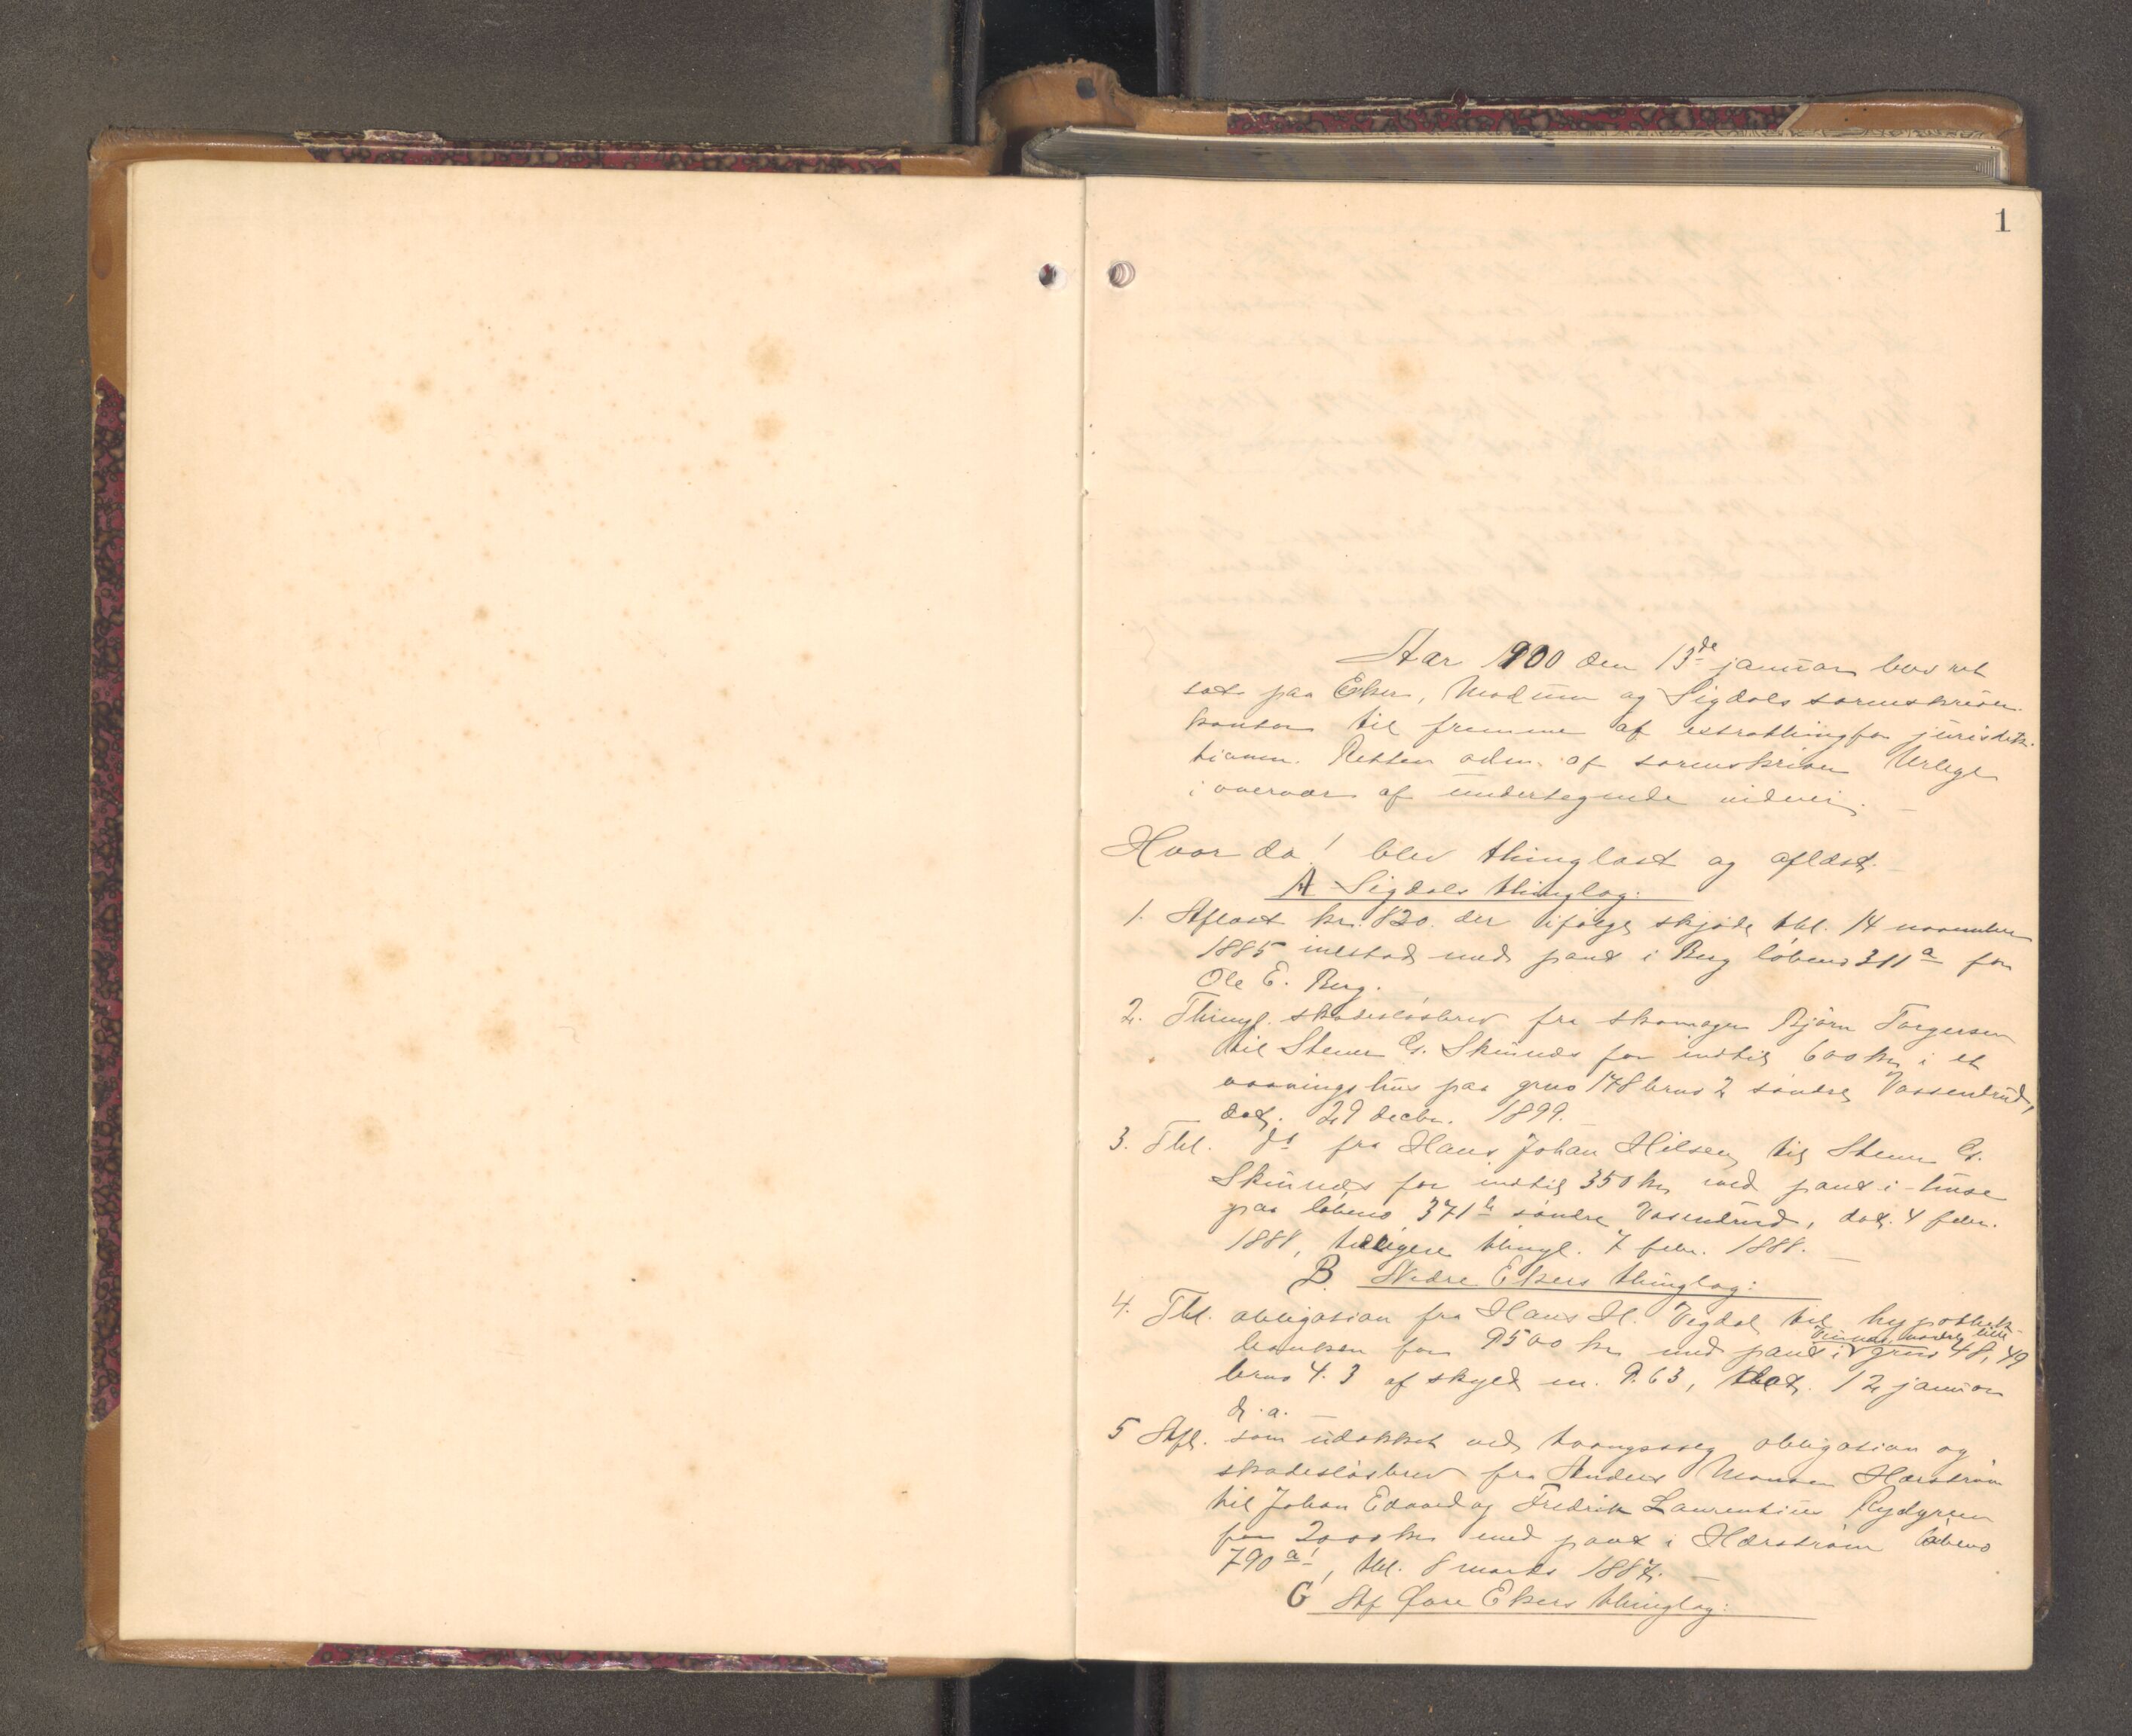 1
Aar 1900 den 13de januar blev ret
sat paa Eker, Modum og Sigdals sorenskriver-
kontor til fremme af extrathing for jurisdik-
tionen. Retten adm. af sorenskriver
i overvær af undertegnede vidner. –
Hvor da! blev thinglæst og aflæst: –
A Sigdals thinglag:
1. Aflæst kr. 820. der ifølge skjøde thl. 14 november
1885 indestod med pant i Berg løbeno 311a for
Ole E. Berg.
2. Thingl. skadesløsbrev fra skomager Bjørn Torgersen
til Stener G. Skinnæs for indtil 600 kr i et
vaaningshus paa grno 178 brno 2 søndre Vassendrud,
dat. 29 decbr. 1899. –
3. Thl. do fra Hans Johan Hilsen til Stener G.
Skinnæs for indtil 350 kr med pant i huse
paa løbeno 371b søndre Vasendrud, dat. 4 febr.
1888, tidligere thingl. 7 febr. 1888. –
B. Nedre Ekers thinglag:
4. Thl. obligation fra Hans H. Vegdal til hypothek-
banken for 9500 kr med pant i grno 48, 49
brno 4. 3 af skyld m. 9.63, dat. 12 januar
d. a. –
5 Afl. som udækket ved tvangssalg obligation og
skadesløsbrev fra Anders Monsen Hærstrøm
til Johan Edvard og Fredrik Laurentius Rydgren
for 2000 kr med pant i Hærstrøm løbeno
790 a!, thl. 8 marts 1887. –
C Øvre Ekers thinglag: